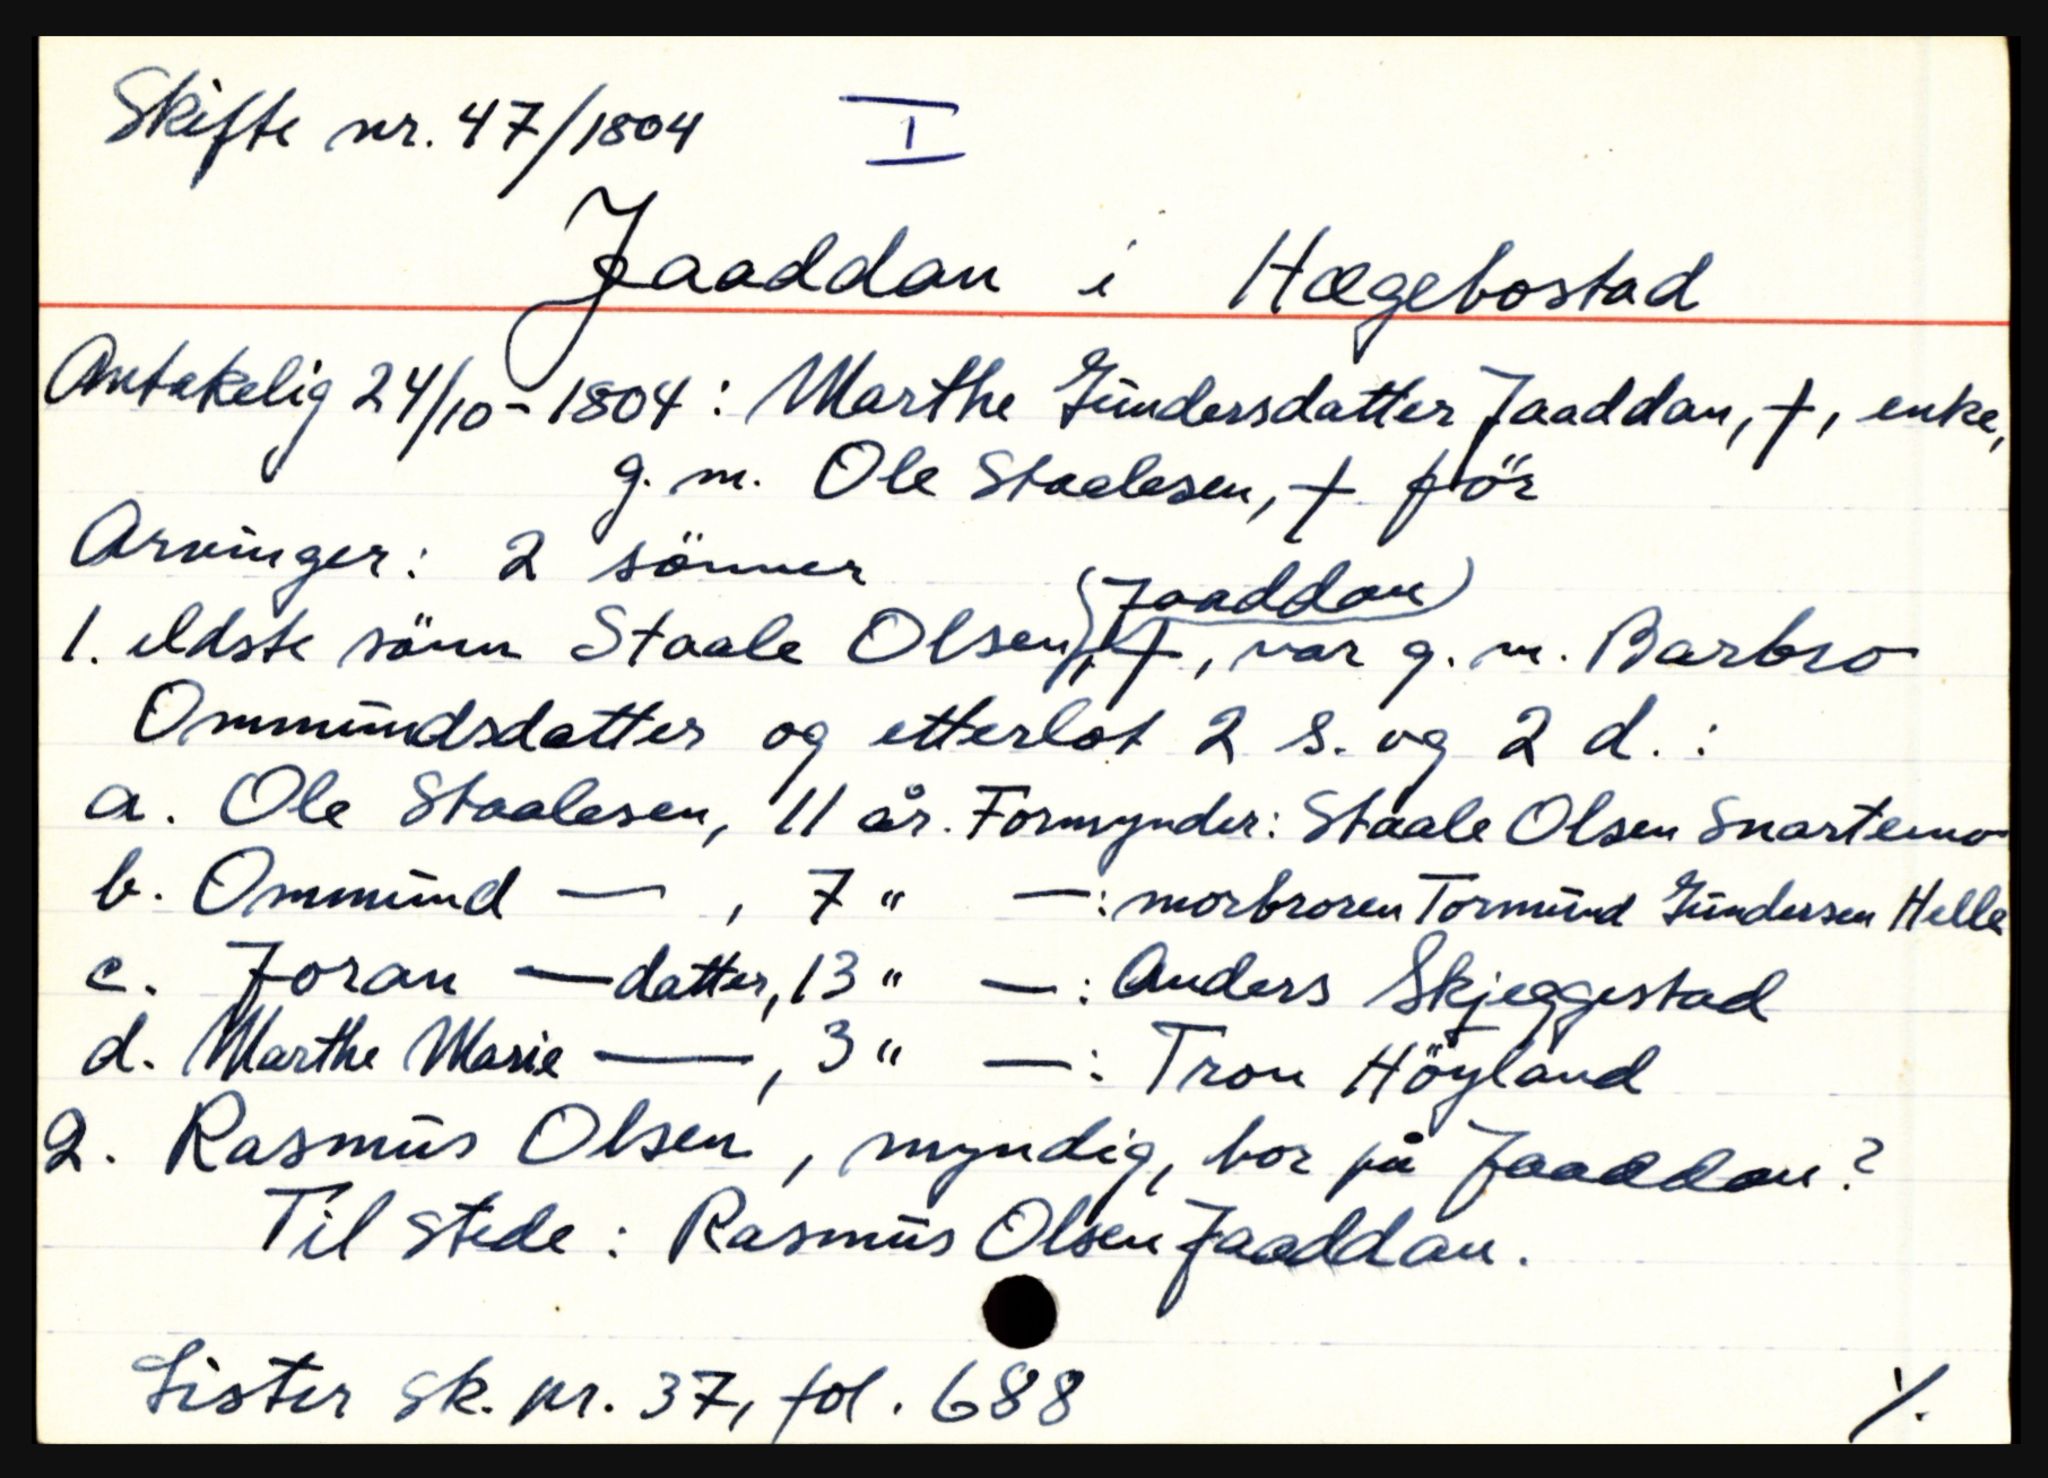 Skifte nr. 47/1804 I
Jaaddan i Hægebostad
Antakelig 24/10-1804: Marthe Gundersdatter Jaaddan, †, enke,
g. m. Ole Staalesen, † för
Arvinger: 2 sönner
1. eldste sönn Staale Olsen, (Jaaddan) †, var g. m. Barbro
Ommundsdatter og etterlot 2 s. og 2 d.:
a. Ole Staalesen, 11 år. Formynder: Staale Olsen Snartemo
b. Ommund —, 7 " —: morbroren Tormund Gundersen Helle
c. Joran — datter, 13 " —: Anders Skjeggestad
d. Marthe Marie —, 3 " —: Tron Höyland
2. Rasmus Olsen, myndig, bor på Jaaddan?
Til stede: Rasmus Olsen Jaaddan.
Lister sk. pr. 37, fol. 688